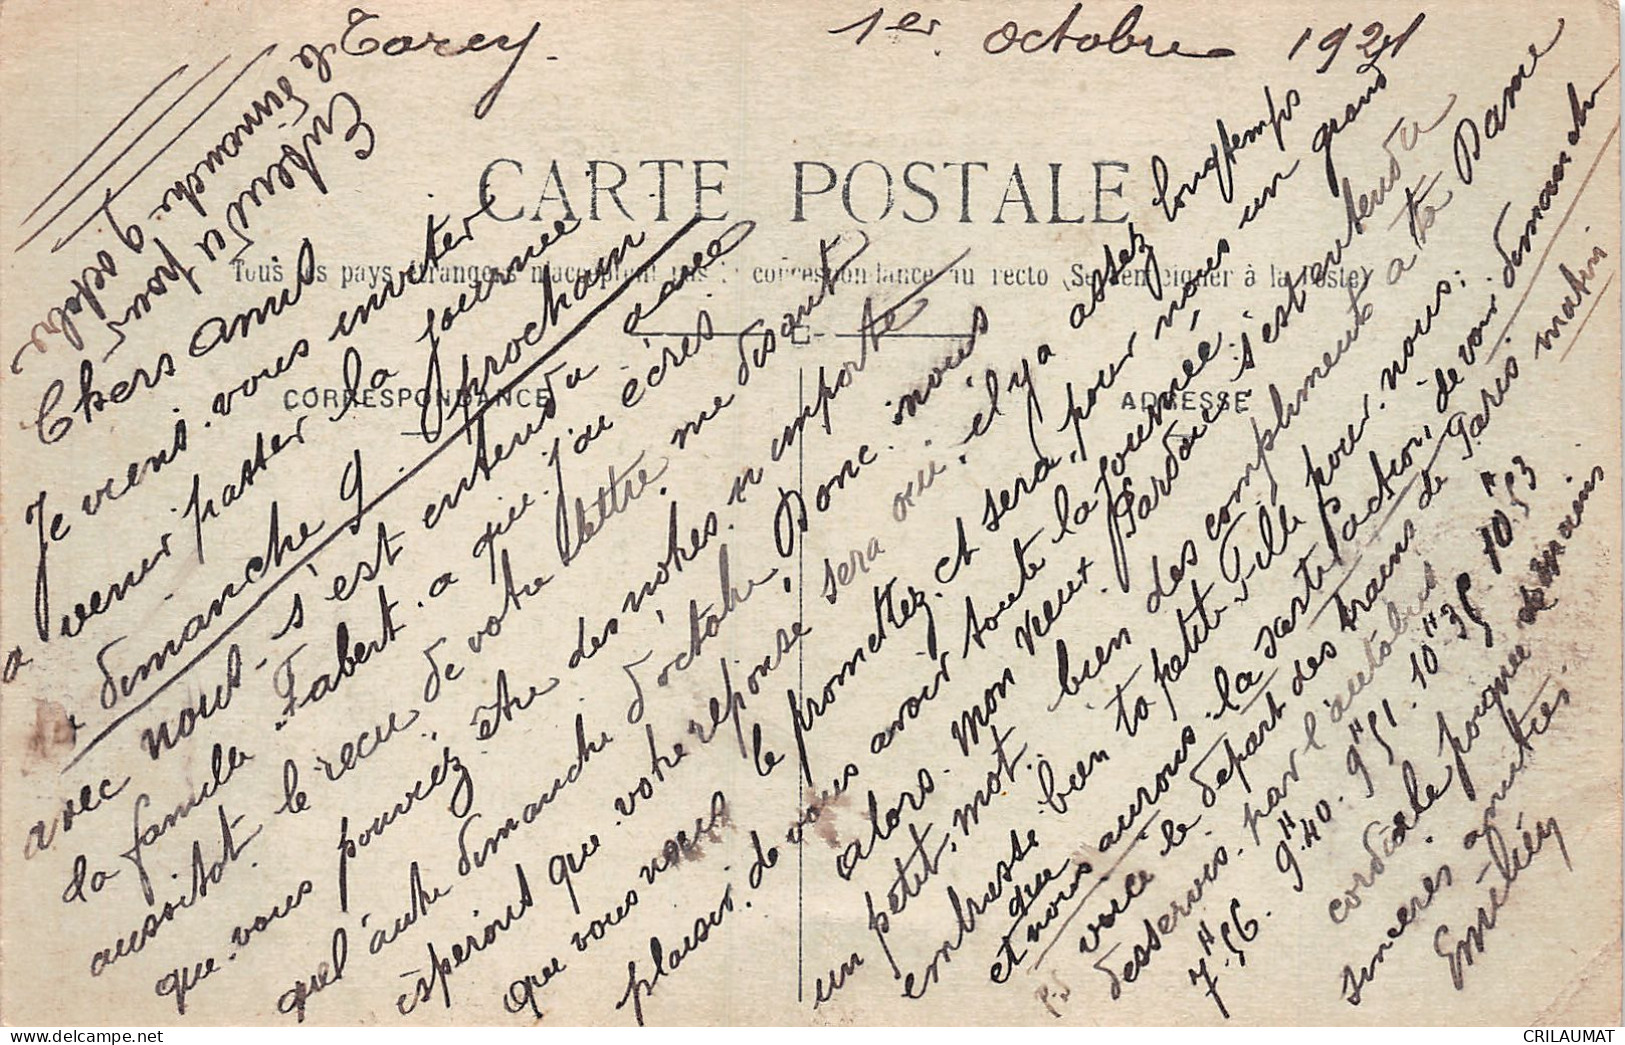 Torcy. 1er octobre 1921
Entendu pour
le dimanche 9 octobre
CARTE POSTALE
Tous les pays étrangers n'acceptent pas la correspondance au recto (Se renseigner à la Poste)
CORRESPONDANCE
ADRESSE
Chers amis
Je viens vous inviter
a venir passer la journée
dimanche 9 prochain
avec nous. s'est entendu avec
la famille Fabert. a qui j'ai écris
aussitot le recu de votre lettre me disant
que vous pouviez être des nôtres n'importe
quel autre dimanche d'octobre, Donc nous
esperons que votre reponse sera oui, il y a assez longtemps
que vous nous le promettez et sera, pour nous un grand
plaisir de vous avoir toute la journée.
alors mon vieux Pardou s'est entendu
un petit mot. bien des compliments a ta Dame
embrasse bien ta petite Fille pour nous.
que
et nous aurons la satisfaction de vous voir dimanche
P.S voice le depart des trains de Paris matin
desservis par l'autobus
7H56. 9H40. 9H51. 10H35. 10H53
cordiale poignée de mains
sinceres amitiés.
Emilien
CRILAUMAT